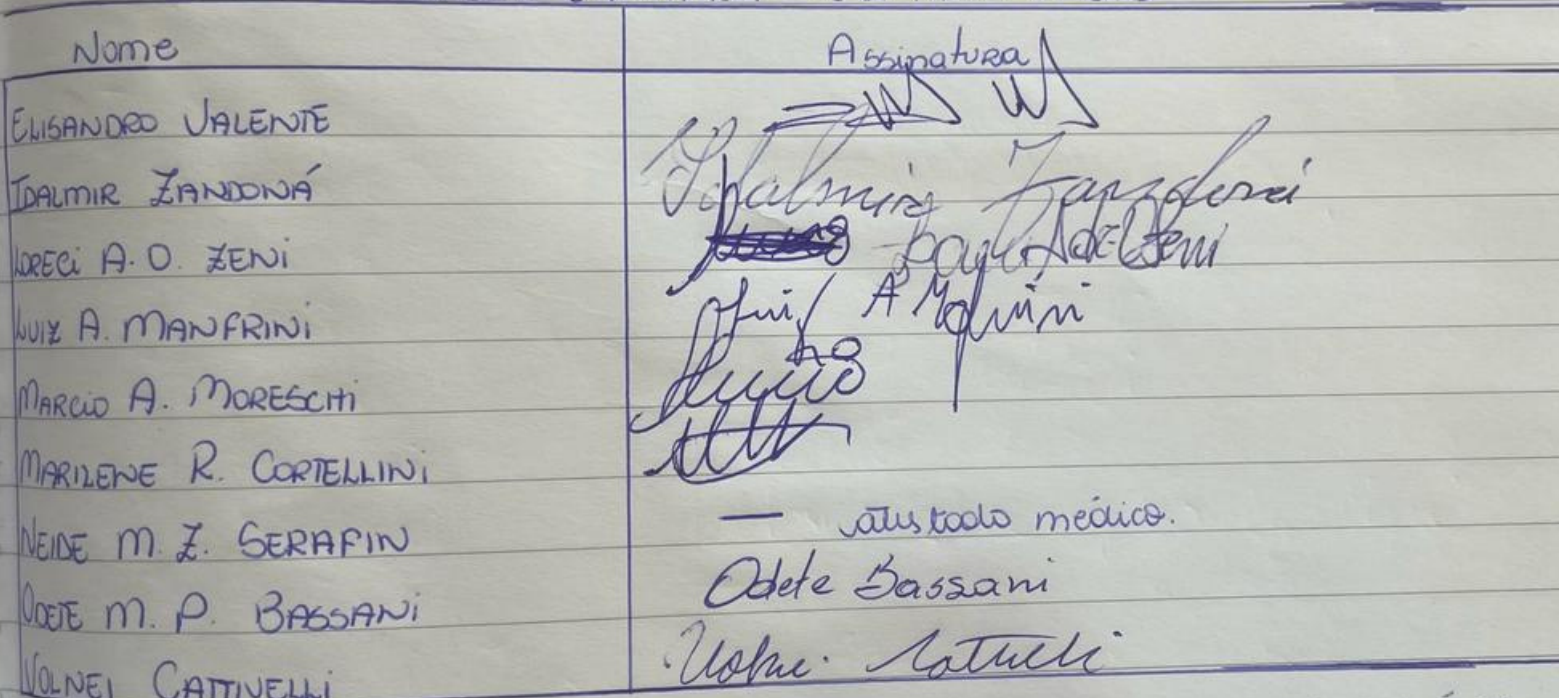 Nome Assinatura
ELISANDRO VALENTE
IDALMIR ZANDONÁ Idalmir Zandoná
LORECI A. O. ZENI
LUIZ A. MANFRINI Luiz A
MARCIO A. MORESCHI Marcio
MARILENE R. CORTELLINI
NEIDE M. Z. SERAFIN — atestado médico.
ODETE M. P. BASSANI Odete Bassani
VOLNEI CATTIVELLI